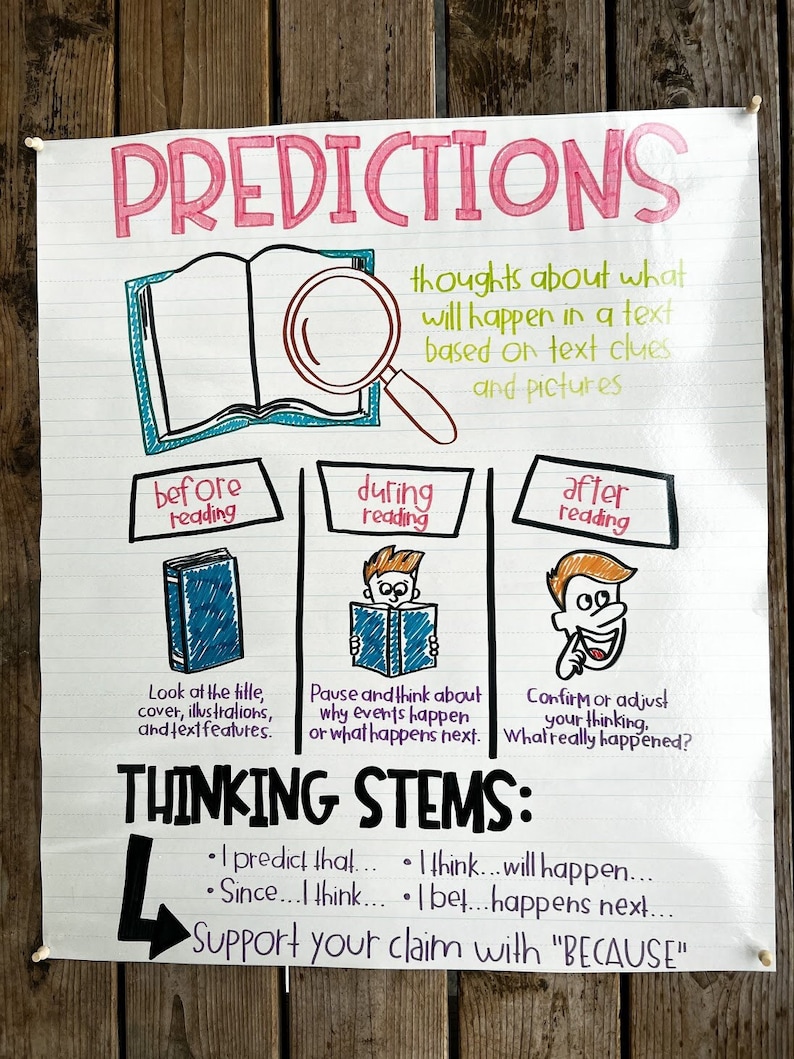 PREDICTIONS
thoughts about what
will happen in a text
based on text clues
and pictures
before
reading
Look at the title,
cover, illustrations,
and text features.
during
reading
Pause and think about
why events happen
or what happens next.
after
reading
Confirm or adjust
your thinking.
What really happened?
THINKING STEMS:
• I predict that... • I think...will happen...
• Since...I think... • I bet...happens next...
Support your claim with "BECAUSE"